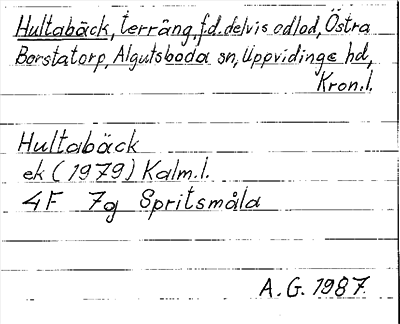 Hultabäck, terräng, f.d. delvis odlad, Östra
Borstatorp, Algutsboda sn, Uppvidinge hd,
Kron.l.
Hultabäck
ek (1979) Kalm.l.
4F 7g Spritsmåla
A.G. 1987